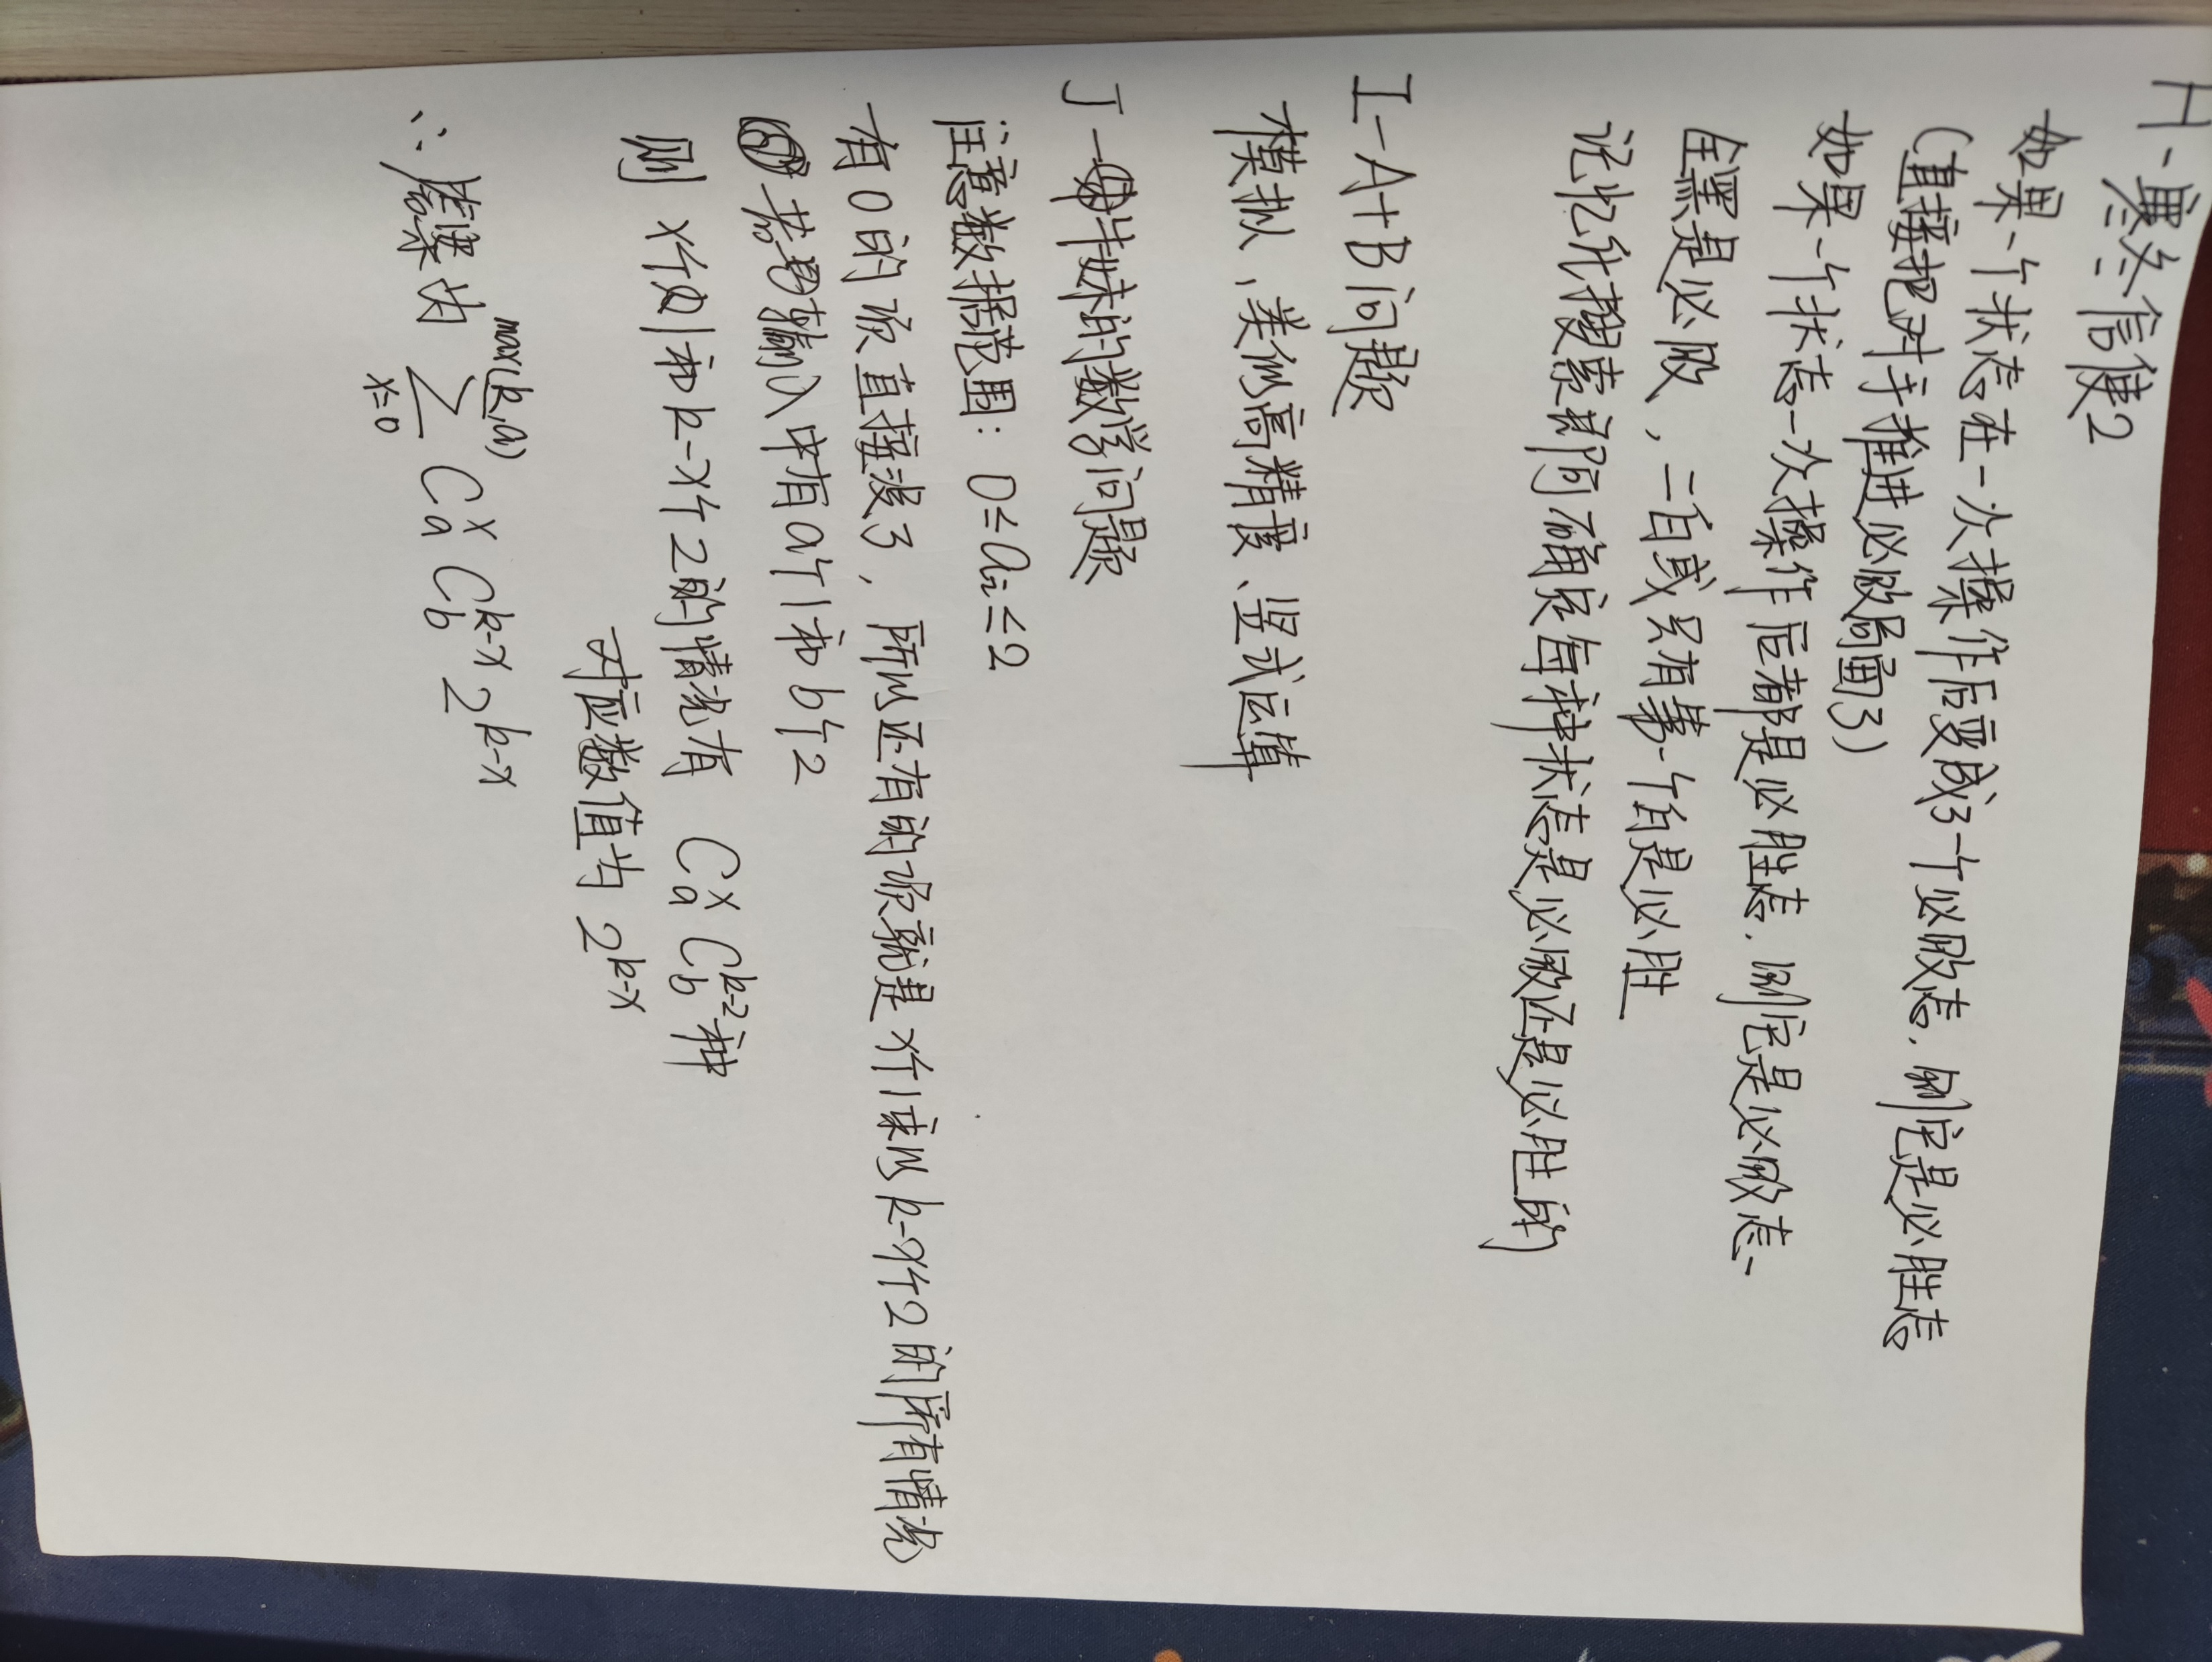 H-寒终信使2
如果一个状态在一次操作后变成了一个必败态，则它是必胜态
（直接把对手推进必败局面了）
如果一个状态一次操作后都是必胜态，则它是必败态-
全黑是必败，二白或只有第一个白是必胜
记忆化搜索即可确定每种状态是必败还是必胜的
I-A+B问题
模拟，类似高精度、竖式运算
J-牛妹的数学问题
注意数据范围：0≤aᵢ≤2
有0的项直接没了，所以还有的项就是x个1乘以k-x个2的所有情况
若输入中有a个1和b个2
则 x个1和k-x个2的情况有 Cₐˣ C_b^{k-2}种
对应数值为 2^{k-x}
∴答案为 ∑_{x=0}^{max(k,a)} Cₐˣ C_b^{k-x} 2^{k-x}